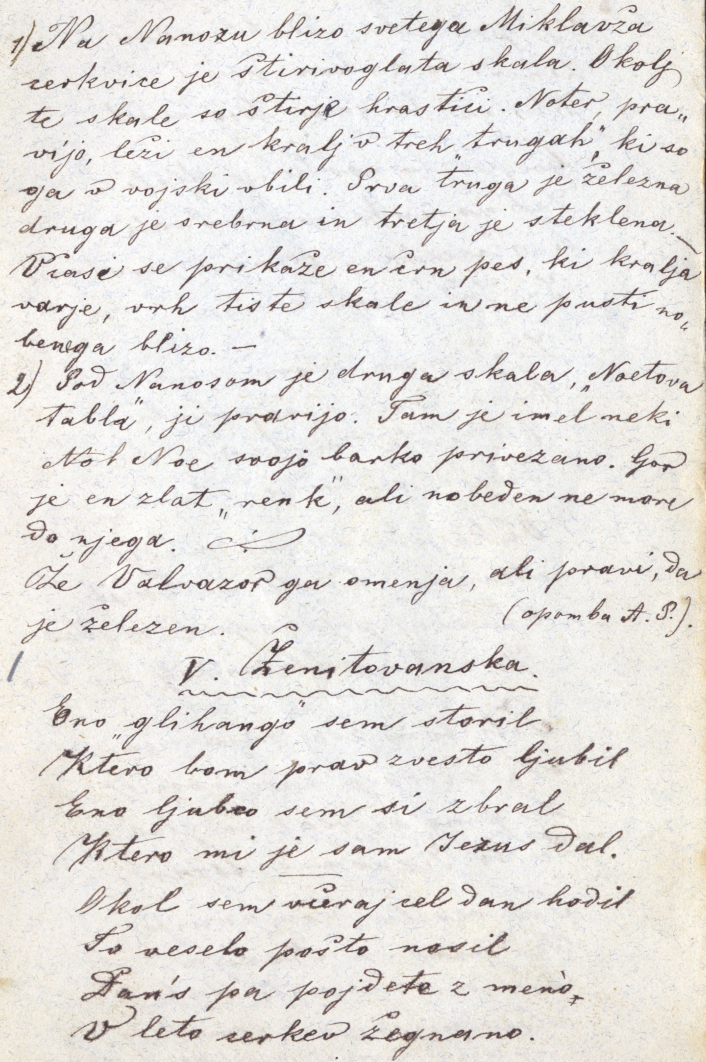 1) Na Nanozu blizo svetega Miklavža
cerkvice je štirivoglata skala. Okolj
te skale so štirje hrastiči. Noter, pra„
vijo, leži en kralj v treh „trugah", ki so
ga v vojski vbili. Prva "truga je železna
druga je srebrna in tretja je steklena. —
Včasi se prikaže en črn pes, ki kralja
varje, vrh tiste skale in ne pusti no„
benega blizo. —
2) Pod Nanosom je druga skala, „Noetova
tabla", ji pravijo. Tam je imel neki
Noe svojo barko privezano. Gor
je en zlat „renk", ali nobeden ne more
do njega.
Že Valvazor ga omenja, ali pravi, da
je železen. (opomba A. P.).
V. Ženitovanska.
Eno „glihango" sem storil
Ktero bom prav zvesto ljubil
Eno ljubco sem si zbral
Ktero mi je sam Jezus dal.
Okol sem včeraj cel dan hodil
To veselo pošto nosil
Dan's pa pojdete z menò,
V leto cerkev žegnano.